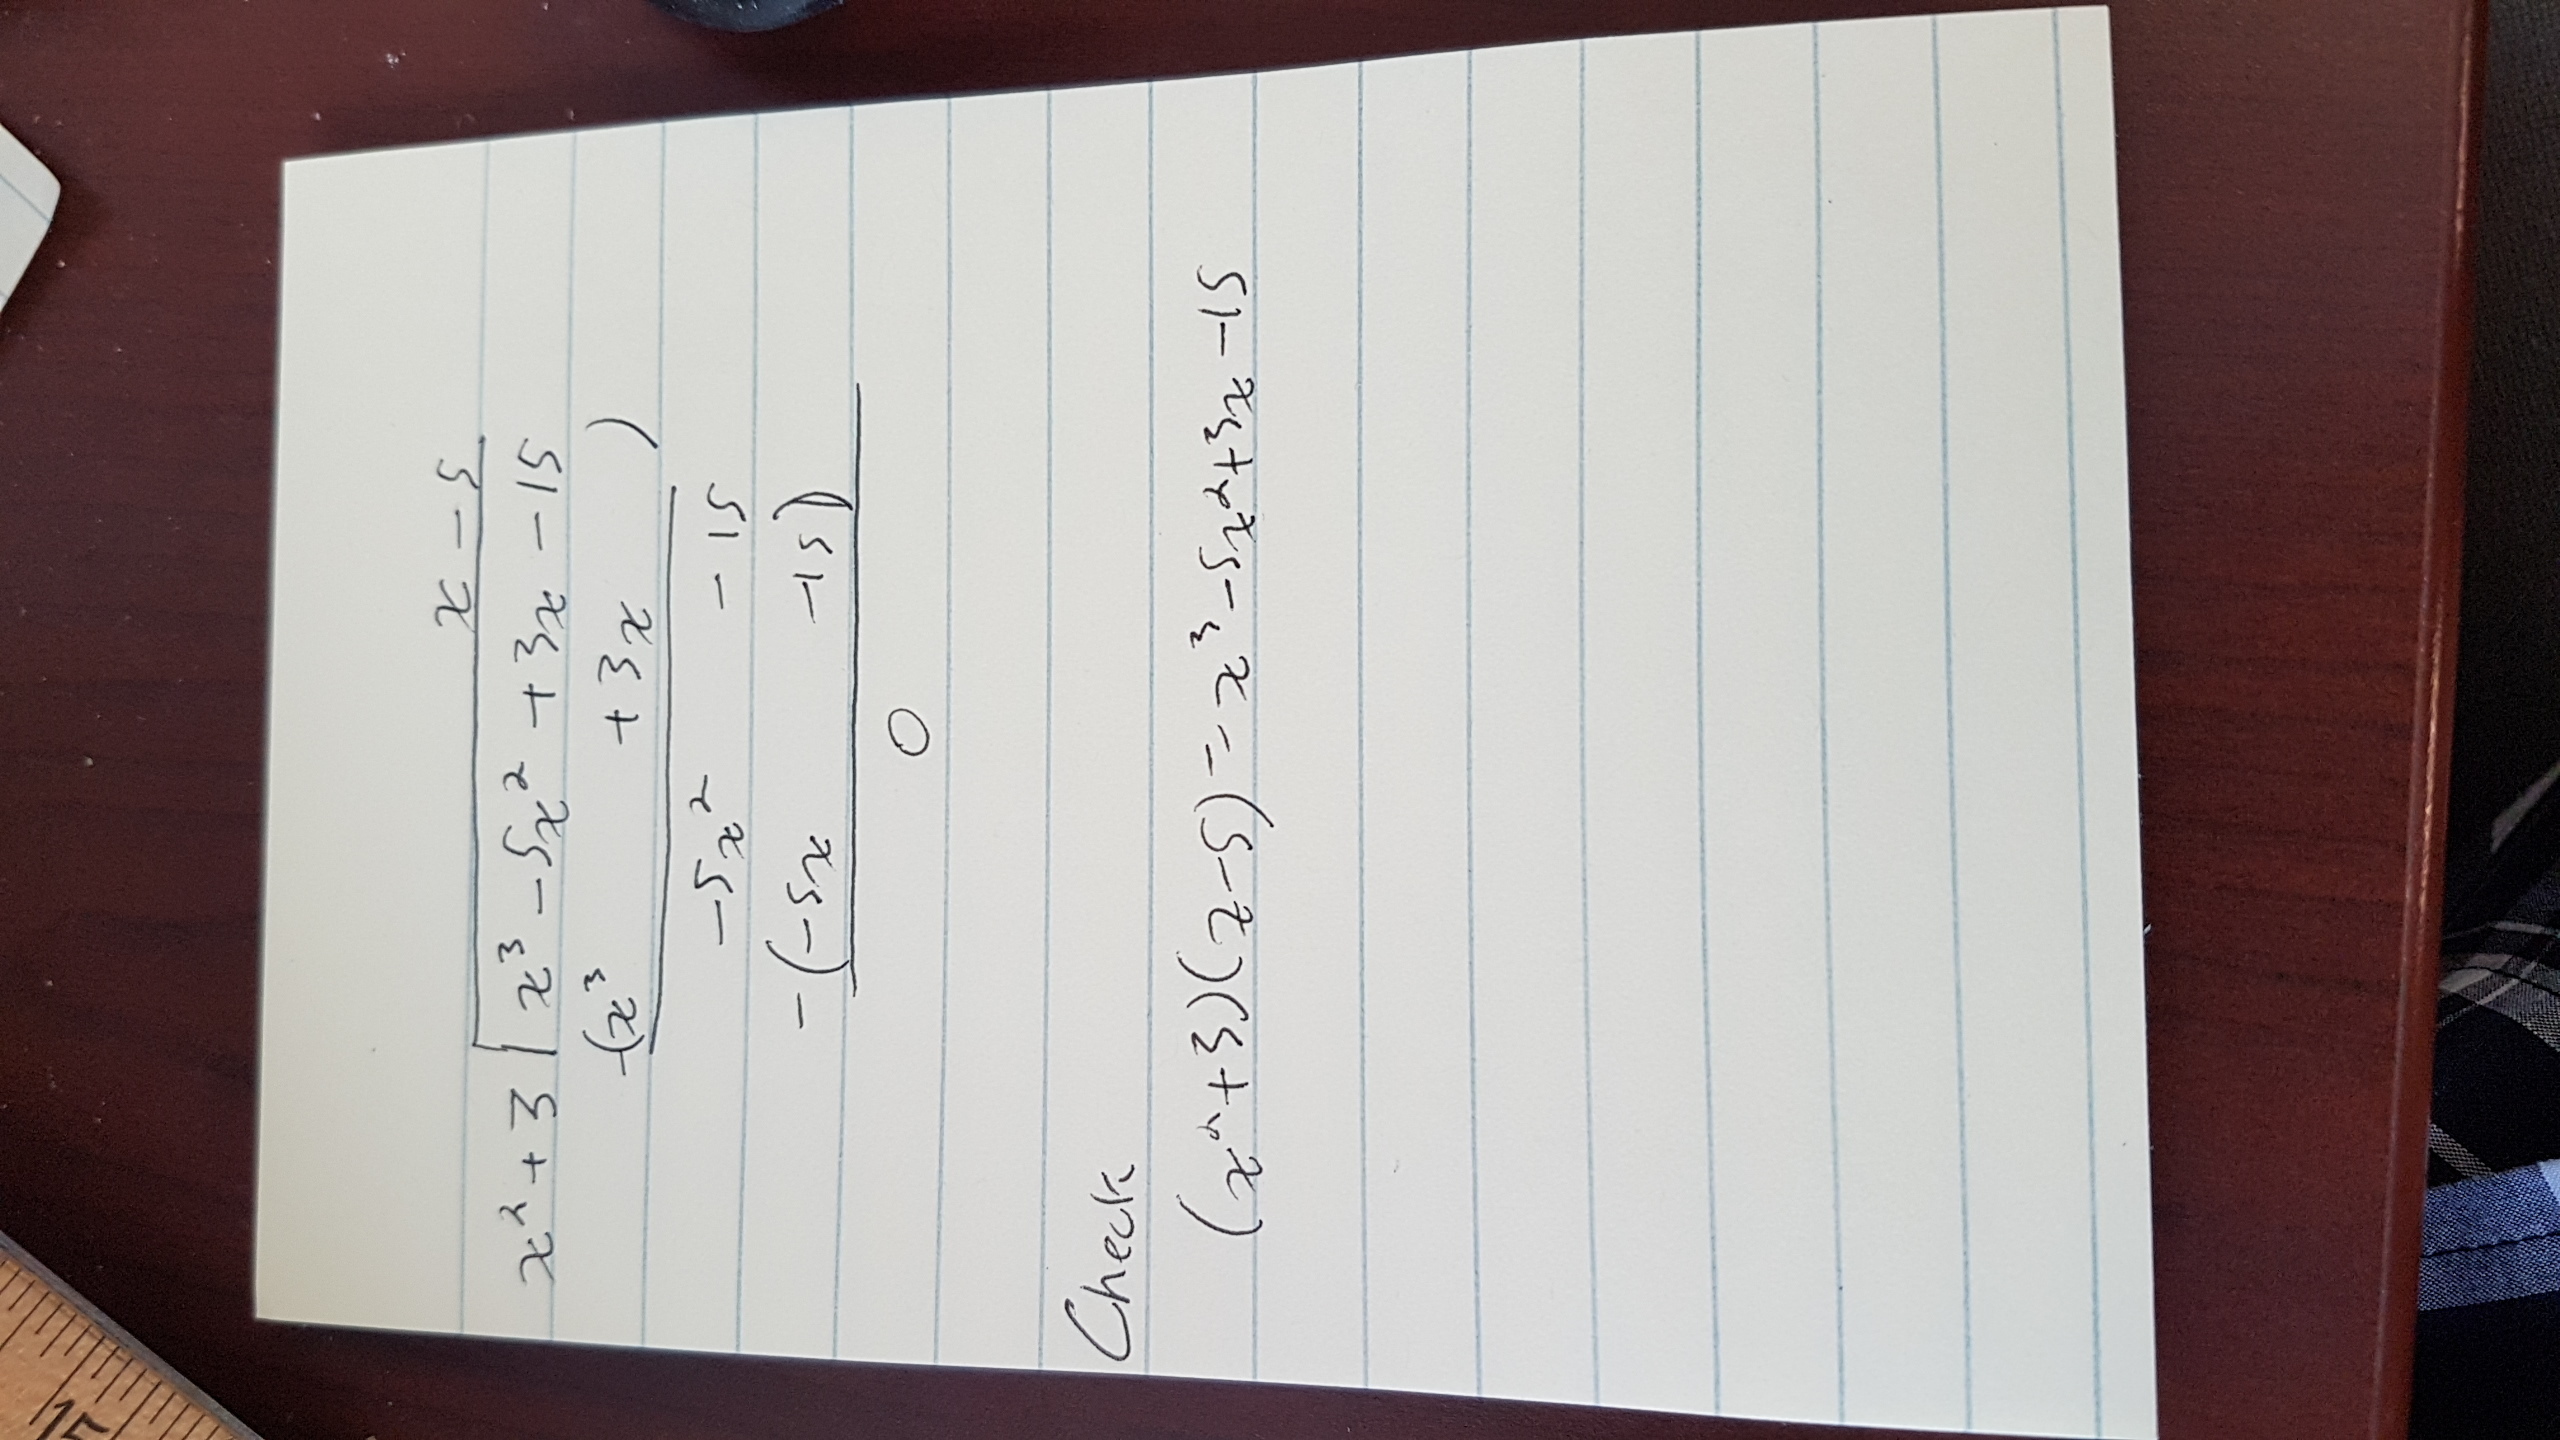 x - 5
x² + 3 | x³ - 5x² + 3x - 15
-(x³ + 3x )
-5x² - 15
-(-5x - 15)
0
Check
(x² + 3)(x - 5) = x³ - 5x² + 3x - 15
15